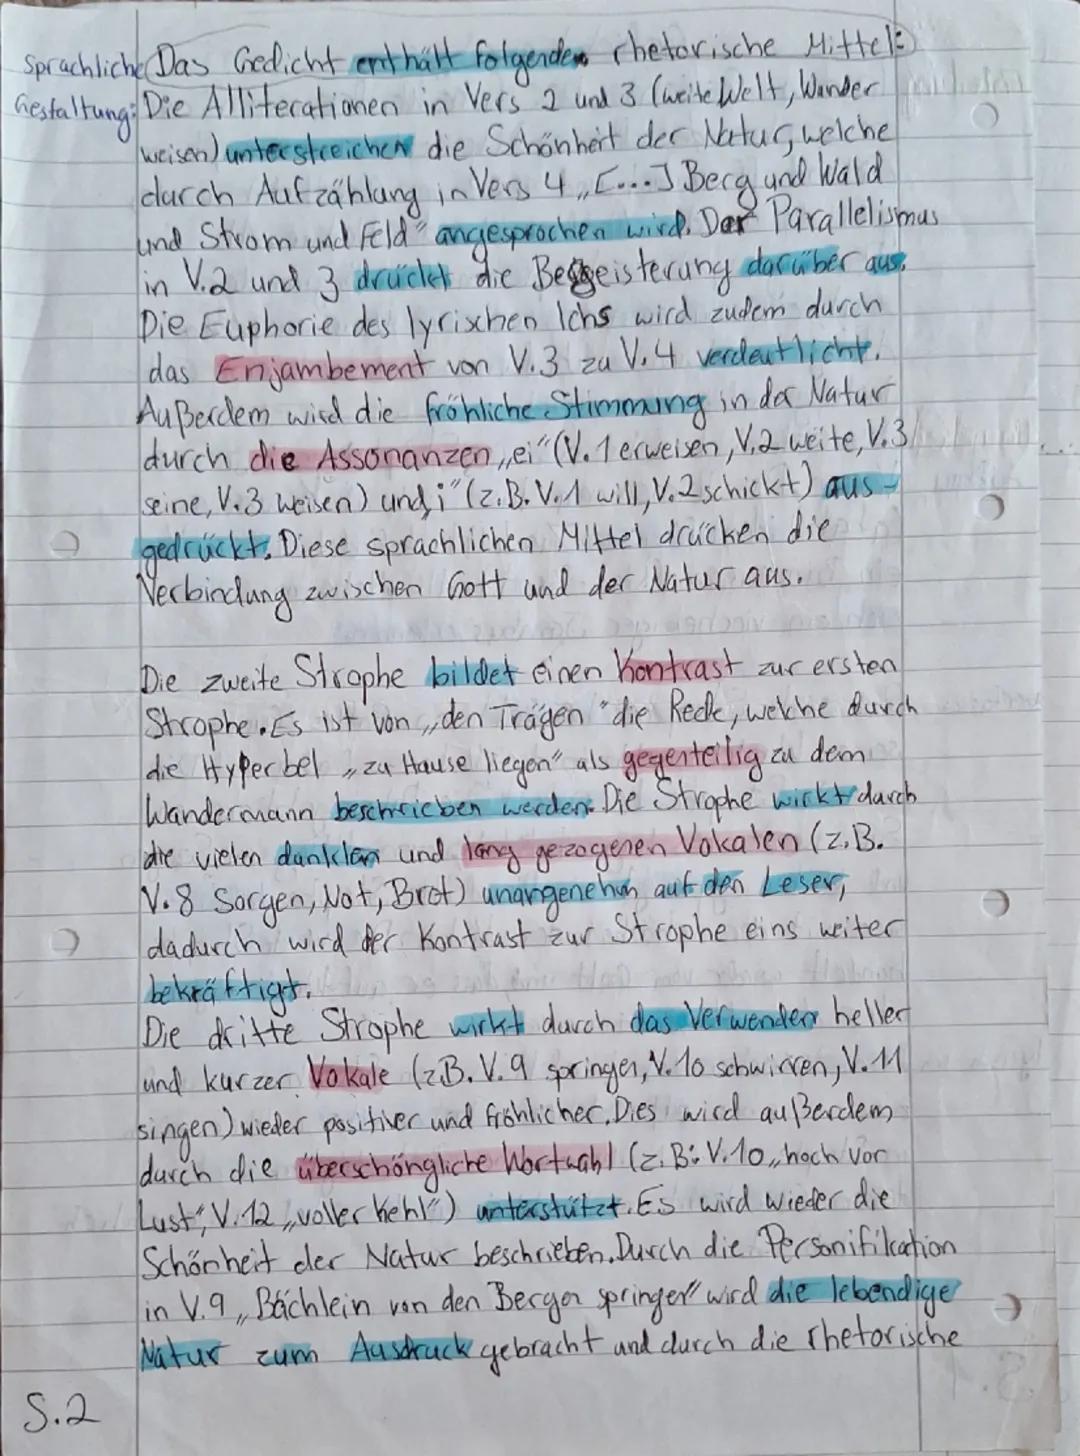 Sprachliche Gestaltung:
(Das Gedicht enthält folgenden rhetorische Mittel:)
Die Alliterationen in Vers 2 und 3 (weite Welt, Wunder
weisen) unterstreichen die Schönheit der Natur, welche
durch Aufzählung in Vers 4 „[...] Berg und Wald
und Strom und Feld" angesprochen wird. Der Parallelismus
in V.2 und 3 drückt die Begeisterung darüber aus.
Die Euphorie des lyrischen Ichs wird zudem durch
das Enjambement von V.3 zu V.4 verdeutlicht.
Außerdem wird die fröhliche Stimmung in der Natur
durch die Assonanzen „ei" (V.1 erweisen, V.2 weite, V.3
seine, V.3 weisen) und „i" (z.B. V.1 will, V.2 schickt) aus-
gedrückt. Diese sprachlichen Mittel drücken die
Verbindung zwischen Gott und der Natur aus.
Die zweite Strophe bildet einen Kontrast zur ersten
Strophe. Es ist von „den Trägen" die Rede, welche durch
die Hyperbel „zu Hause liegen" als gegenteilig zu dem
Wandermann beschrieben werden. Die Strophe wirkt durch
die vielen dunklen und lang gezogenen Vokalen (z.B.
V.8 Sorgen, Not, Brot) unangenehm auf den Leser,
dadurch wird der Kontrast zur Strophe eins weiter
bekräftigt.
Die dritte Strophe wirkt durch das Verwenden heller
und kurzer Vokale (z.B. V.9 springen, V.10 schwirren, V.11
singen) wieder positiver und fröhlicher. Dies wird außerdem
durch die überschöngliche Wortwahl (z.B: V.10 „hoch vor
Lust", V.12 „voller Kehl") unterstützt. Es wird wieder die
Schönheit der Natur beschrieben. Durch die Personifikation
in V.9 „Bächlein von den Bergen springen" wird die lebendige
Natur zum Ausdruck gebracht und durch die rhetorische
S.2